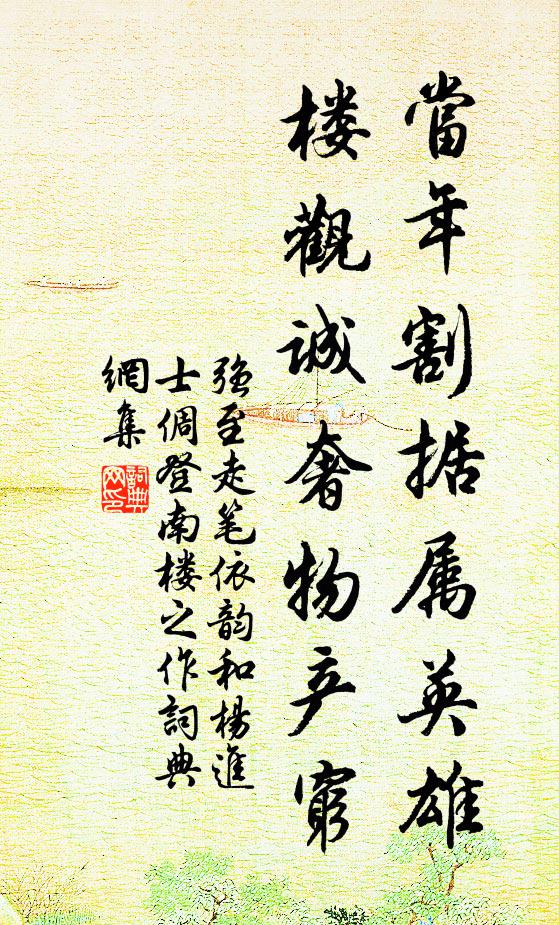 當年割据属英雄
楼觀誠奢物产窮
强至走笔依韵和楊進
士倜登南楼之作詞典
網集
詞典网印